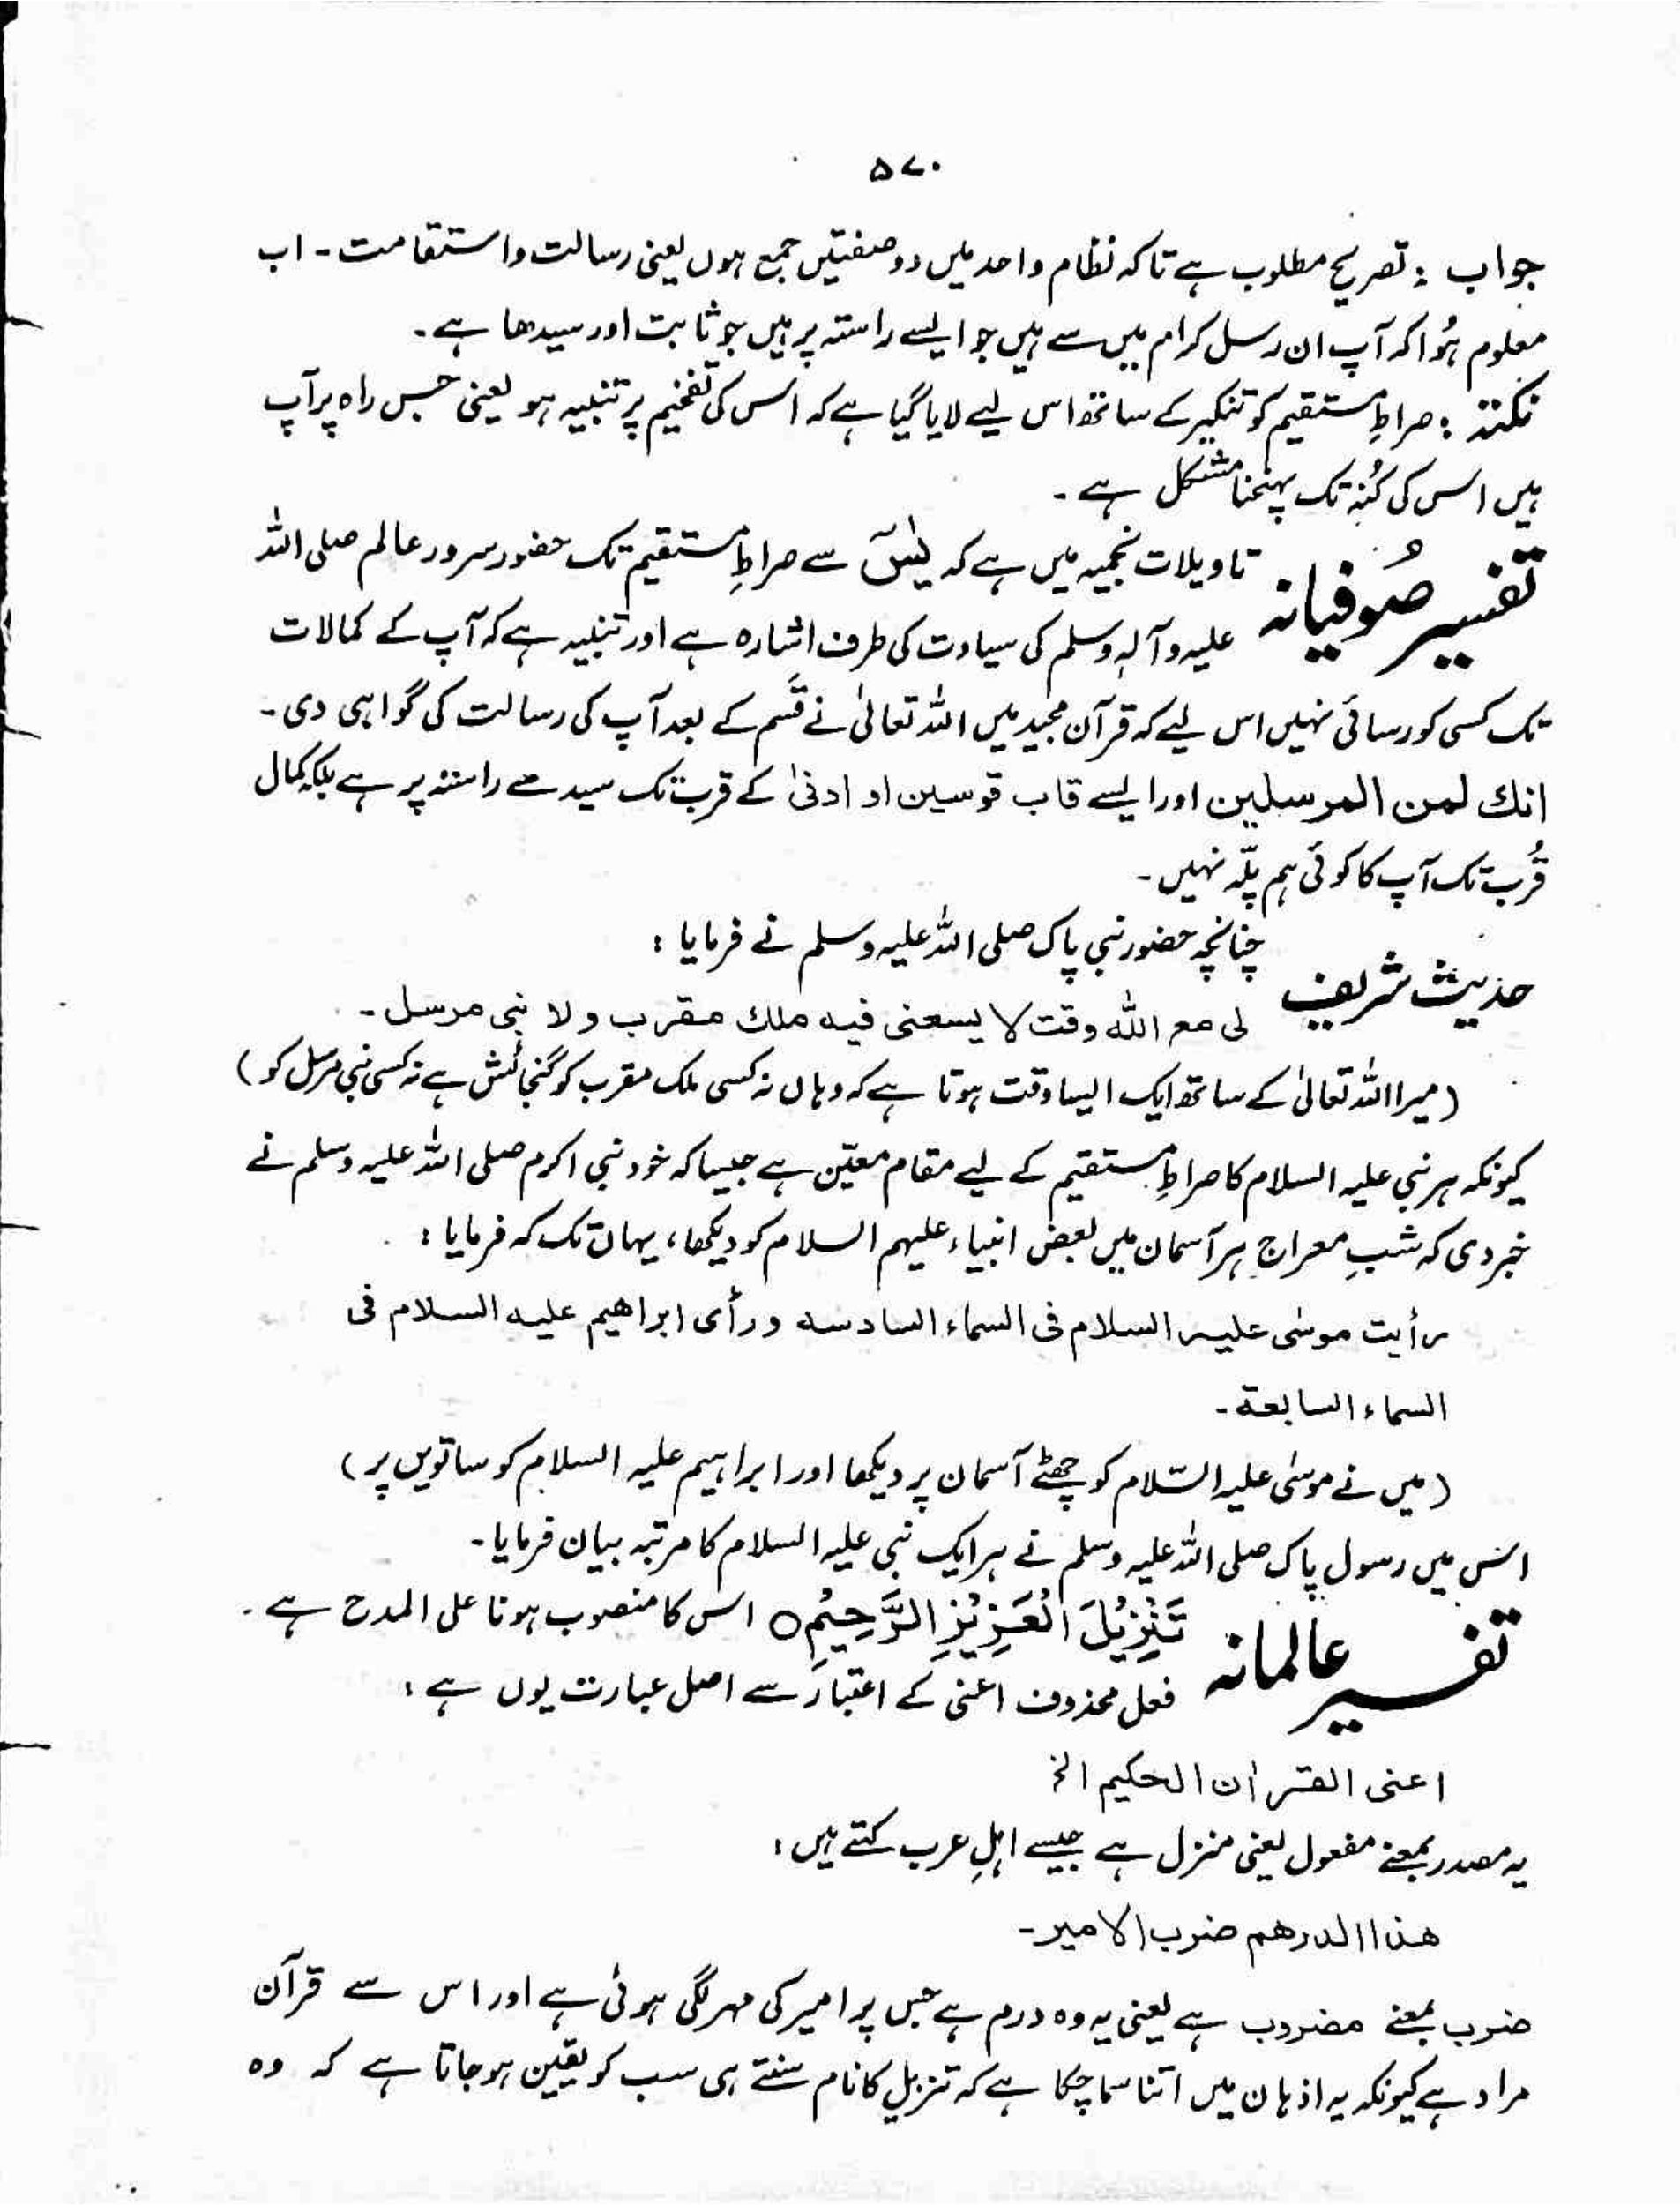 ۵۷۰
جواب : تصریح مطلوب ہے تاکہ نظام واحد میں دو صفتیں جمع ہوں یعنی رسالت و استقامت ۔ اب
معلوم ہُوا کہ آپ ان رسل کرام میں سے ہیں جو ایسے راستہ پر ہیں جو ثابت اور سیدھا ہے ۔
نکتہ : صراطِ مستقیم کو تنکیر کے ساتھ اس لیے لایا گیا ہے کہ اس کی تفخیم پر تنبیہ ہو یعنی جس راہ پر آپ
ہیں اس کی کُنہ تک پہنچنا مشکل ہے ۔
تفسیر صُوفیانہ تاویلات نجمیہ میں ہے کہ یٰسٓ سے صراطِ مستقیم تک حضور سرور عالم صلی اللہ
علیہ وآلہٖ وسلم کی سیادت کی طرف اشارہ ہے اور تنبیہ ہے کہ آپ کے کمالات
تک کسی کو رسائی نہیں اس لیے کہ قرآن مجید میں اللہ تعالیٰ نے قَسم کے بعد آپ کی رسالت کی گواہی دی ۔
انك لمن المرسلین اور ایسے قاب قوسین او ادنیٰ کے قرب تک سیدھے راستہ پر ہے بلکہ کمال
قُرب تک آپ کا کوئی ہم پلّہ نہیں ۔
حدیث شریف چنانچہ حضور نبی پاک صلی اللہ علیہ وسلم نے فرمایا :
لی مع اللہ وقت لا یسعنی فیہ ملك مقرب ولا نبی مرسل ۔
( میرا اللہ تعالیٰ کے ساتھ ایک ایسا وقت ہوتا ہے کہ وہاں نہ کسی ملک مقرب کو گنجائش ہے نہ کسی نبی مرسل کو )
کیونکہ ہر نبی علیہ السلام کا صراطِ مستقیم کے لیے مقام معیّن ہے جیسا کہ خود نبی اکرم صلی اللہ علیہ وسلم نے
خبر دی کہ شبِ معراج ہر آسمان میں بعض انبیاء علیہم السلام کو دیکھا ، یہاں تک کہ فرمایا :
رأیت موسٰی علیہ السلام فی السماء السادسہ و رأی ابراھیم علیہ السلام فی
السماء السابعۃ ۔
( میں نے موسٰی علیہ السّلام کو چھٹے آسمان پر دیکھا اور ابراہیم علیہ السلام کو ساتویں پر )
اس میں رسول پاک صلی اللہ علیہ وسلم نے ہر ایک نبی علیہ السلام کا مرتبہ بیان فرمایا ۔
تفسیر عالمانہ تَنْزِیْلَ الْعَزِیْزِ الرَّحِیْمِ ○ اس کا منصوب ہونا علی المدح ہے ۔
فعل محذوف اعنی کے اعتبار سے اصل عبارت یوں ہے :
اعنی القراٰن الحکیم الخ
یہ مصدر بمعنے مفعول یعنی منزل ہے جیسے اہلِ عرب کہتے ہیں :
ھذا الدرھم ضرب الامیر ۔
ضرب بمعنے مضروب ہے یعنی یہ وہ درم ہے جس پر امیر کی مہر لگی ہوئی ہے اور اس سے قرآن
مراد ہے کیونکہ یہ اذہان میں اتنا سما چکا ہے کہ تنزیل کا نام سنتے ہی سب کو یقین ہو جاتا ہے کہ وہ